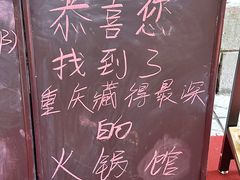 恭喜您
找到了
重庆藏得最深
的
火锅馆